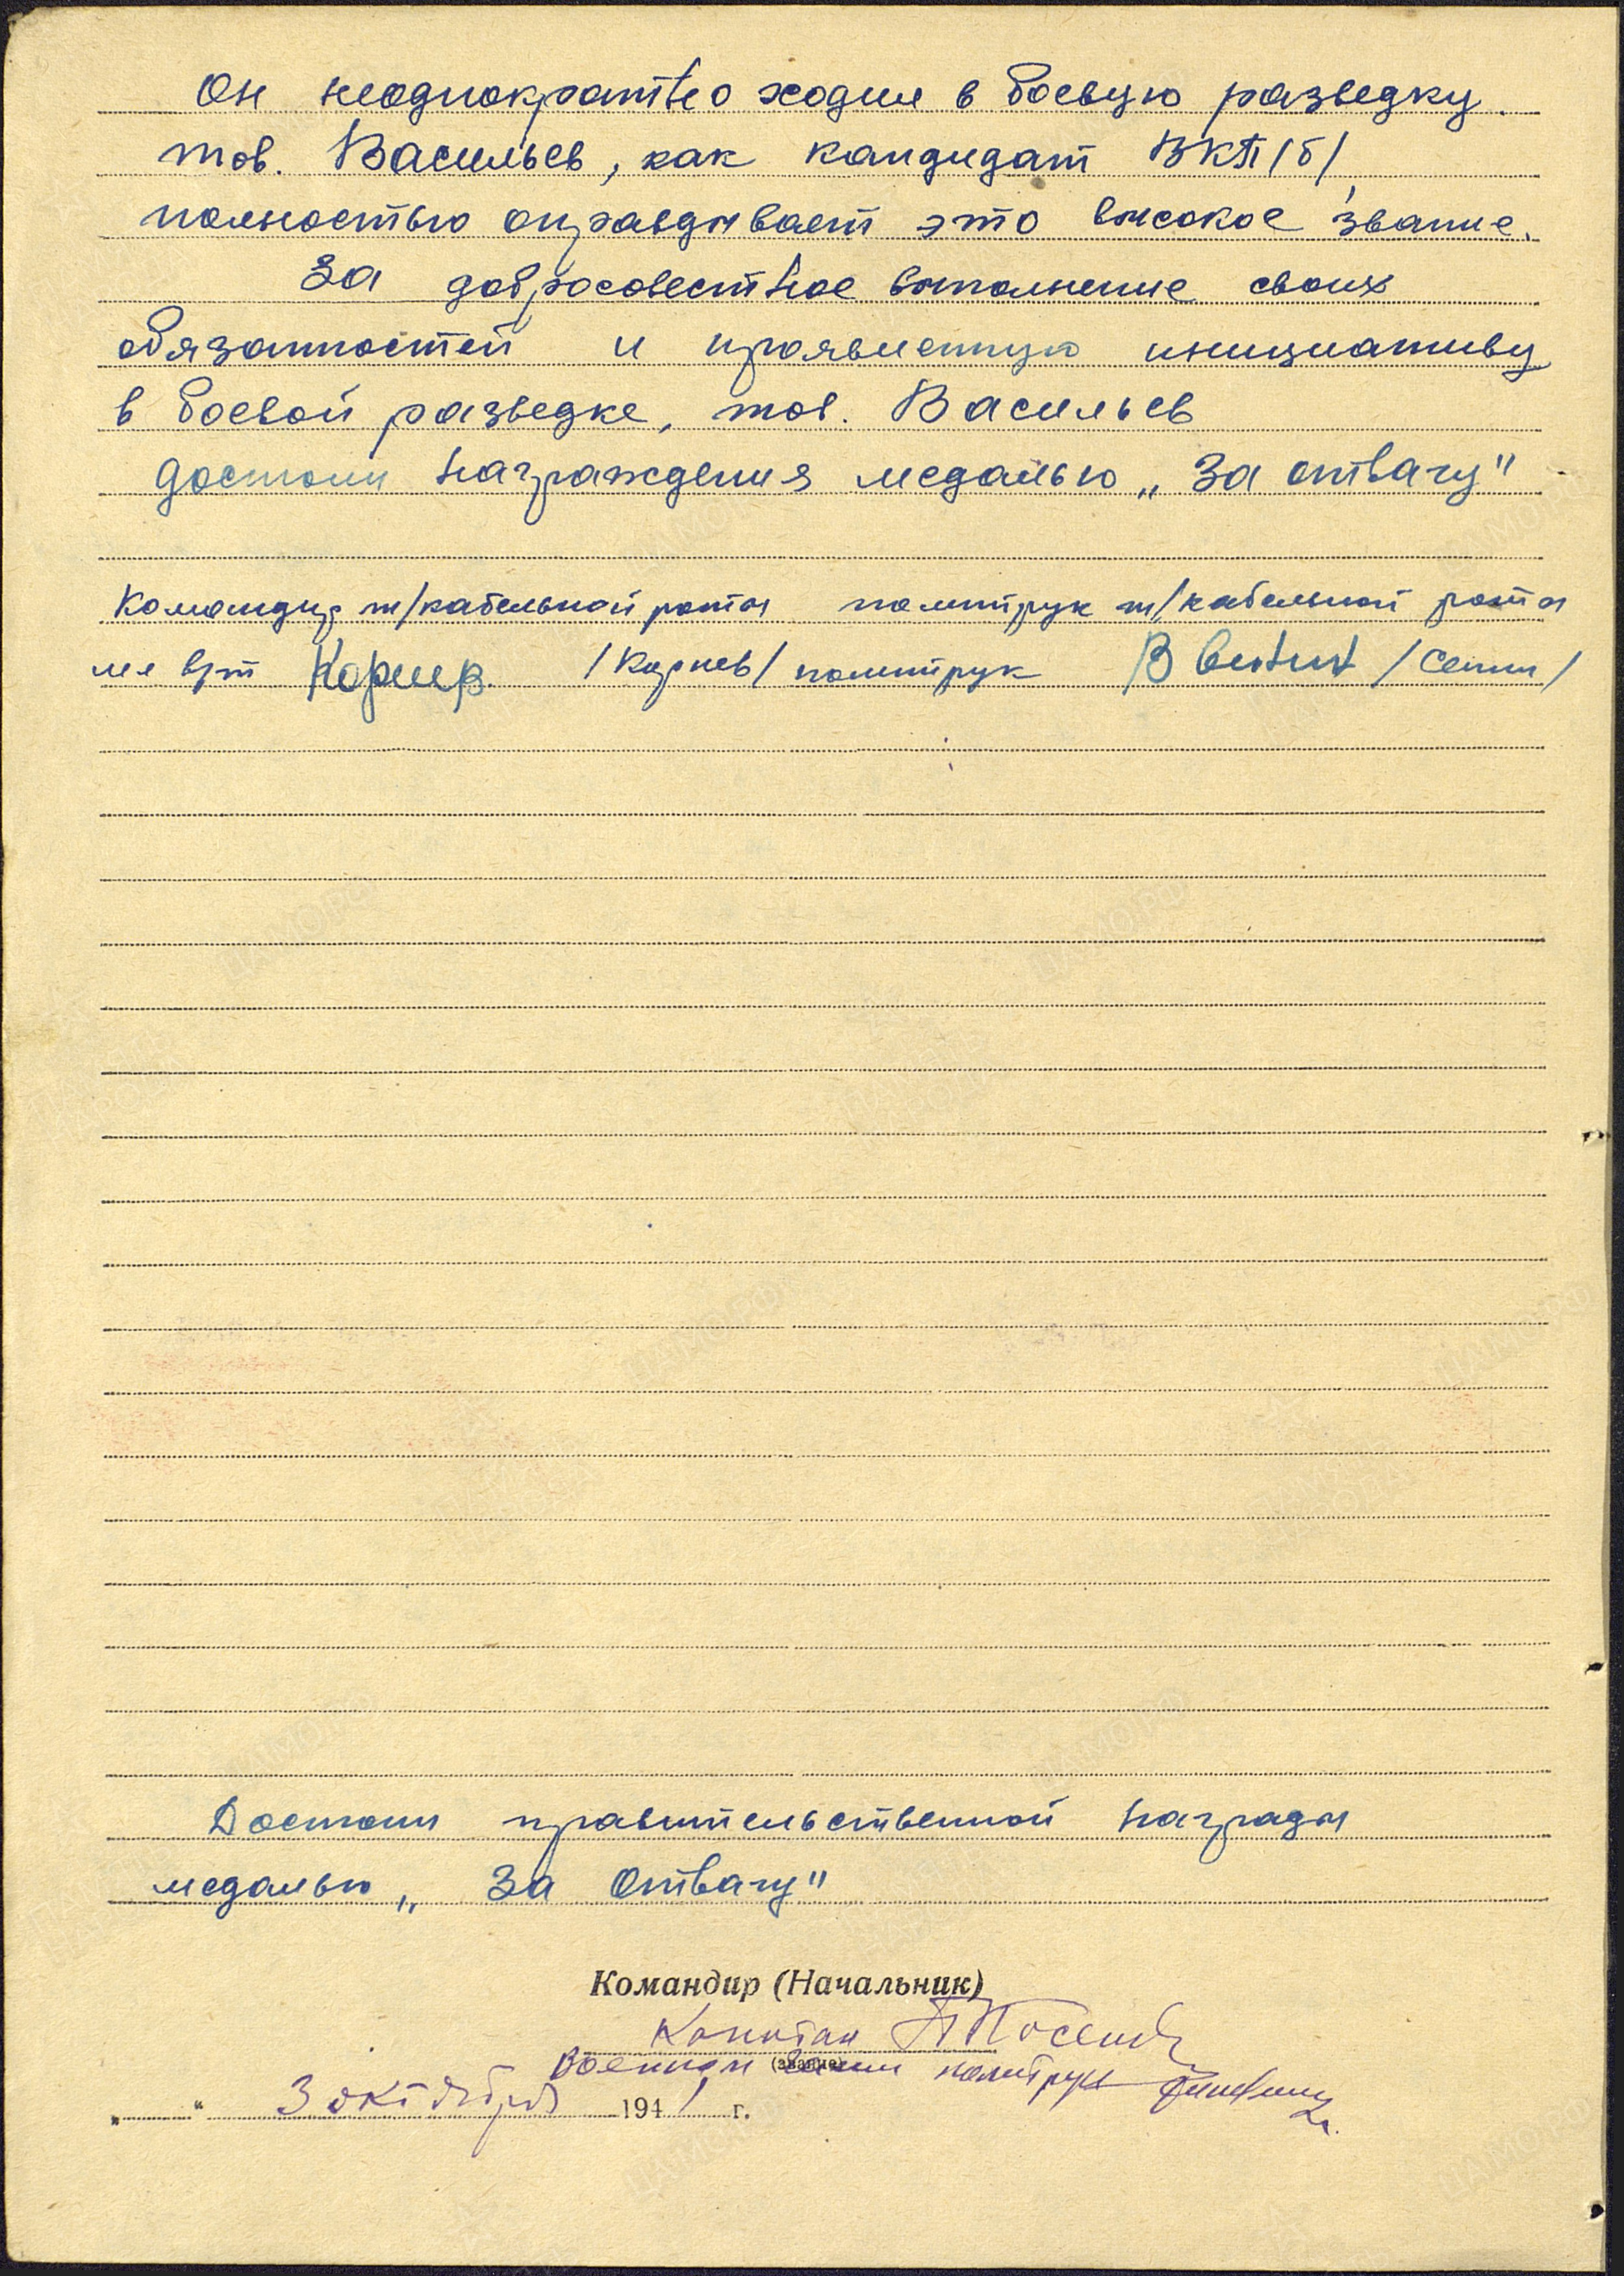 Он неоднократно ходил в боевую разведку.
тов. Васильев, как кандидат ВКП/б/
полностью оправдывает это высокое звание.
За добросовестное выполнение своих
обязанностей и проявленную инициативу
в боевой разведке, тов. Васильев
достоин награждения медалью „За отвагу"
Командир т/кабельной роты политрук т/кабельной роты
мл в/т Корнев /Корнев/ политрук
Достоин правительственной награды
медалью „За Отвагу"
Командир (Начальник)
Капитан
Военком политрук
(звание)
„ “ 3 октября 1941 г.